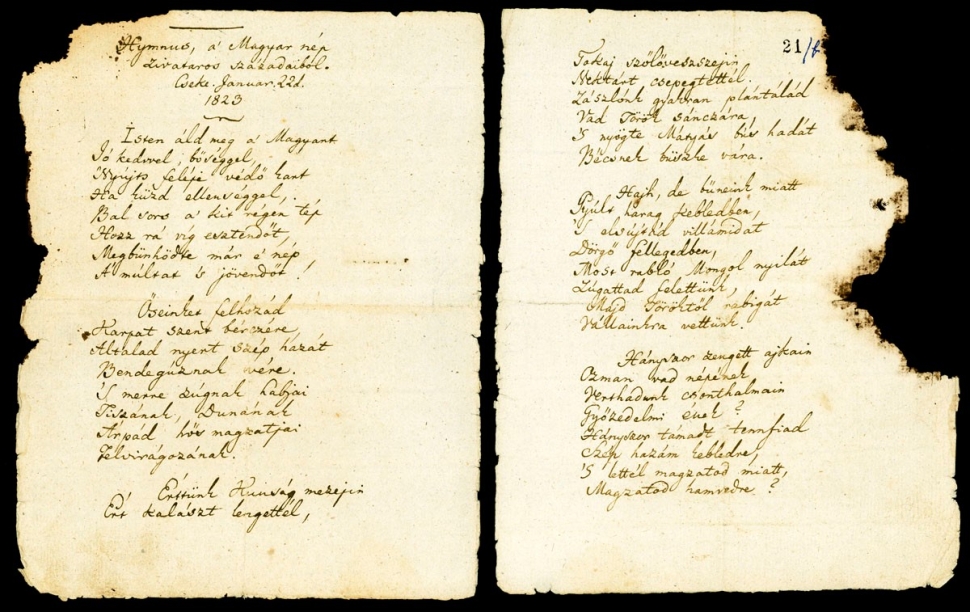 Hymnus, a' Magyar nép
zivataros századaiból.
Cseke. Januar. 22d.
1823
Isten áld meg a' Magyart
Jó kedvvel, bőséggel,
Nyújts feléje védő kart
Ha küzd ellenséggel,
Bal sors a' kit régen tép
Hozz rá víg esztendőt,
Megbűnhődte már e' nép
A' múltat 's jövendőt!
Őseinket felhozád
Kárpát szent bérczére,
Általad nyert szép hazát
Bendegúznak vére.
'S merre zúgnak habjai
Tiszának, Dunának
Árpád hős magzatjai
Felvirágozának.
Értünk Kunság mezején
Ért kalászt lengettél,
21/b
Tokaj szőlővesszején
Nektárt csepegtettél.
Zászlónk gyakran plántálád
Vad Török sánczára,
'S nyögte Mátyás bús hadát
Bécsnek büszke vára.
Hajh, de bűneink miatt
Gyúlt harag kebledben,
'S elsujtád villámidat
Dörgő fellegedben,
Most rabló Mongol nyilát
Zúgattad felettünk,
Majd Töröktől rabigát
Vállainkra vettünk.
Hányszor zengett ajkain
Ozman vad népének
Vert hadunk csonthalmain
Győzedelmi ének?
Hányszor támadt tennfiad
Szép hazám kebledre,
'S lettél magzatod miatt,
Magzatod hamvedre?